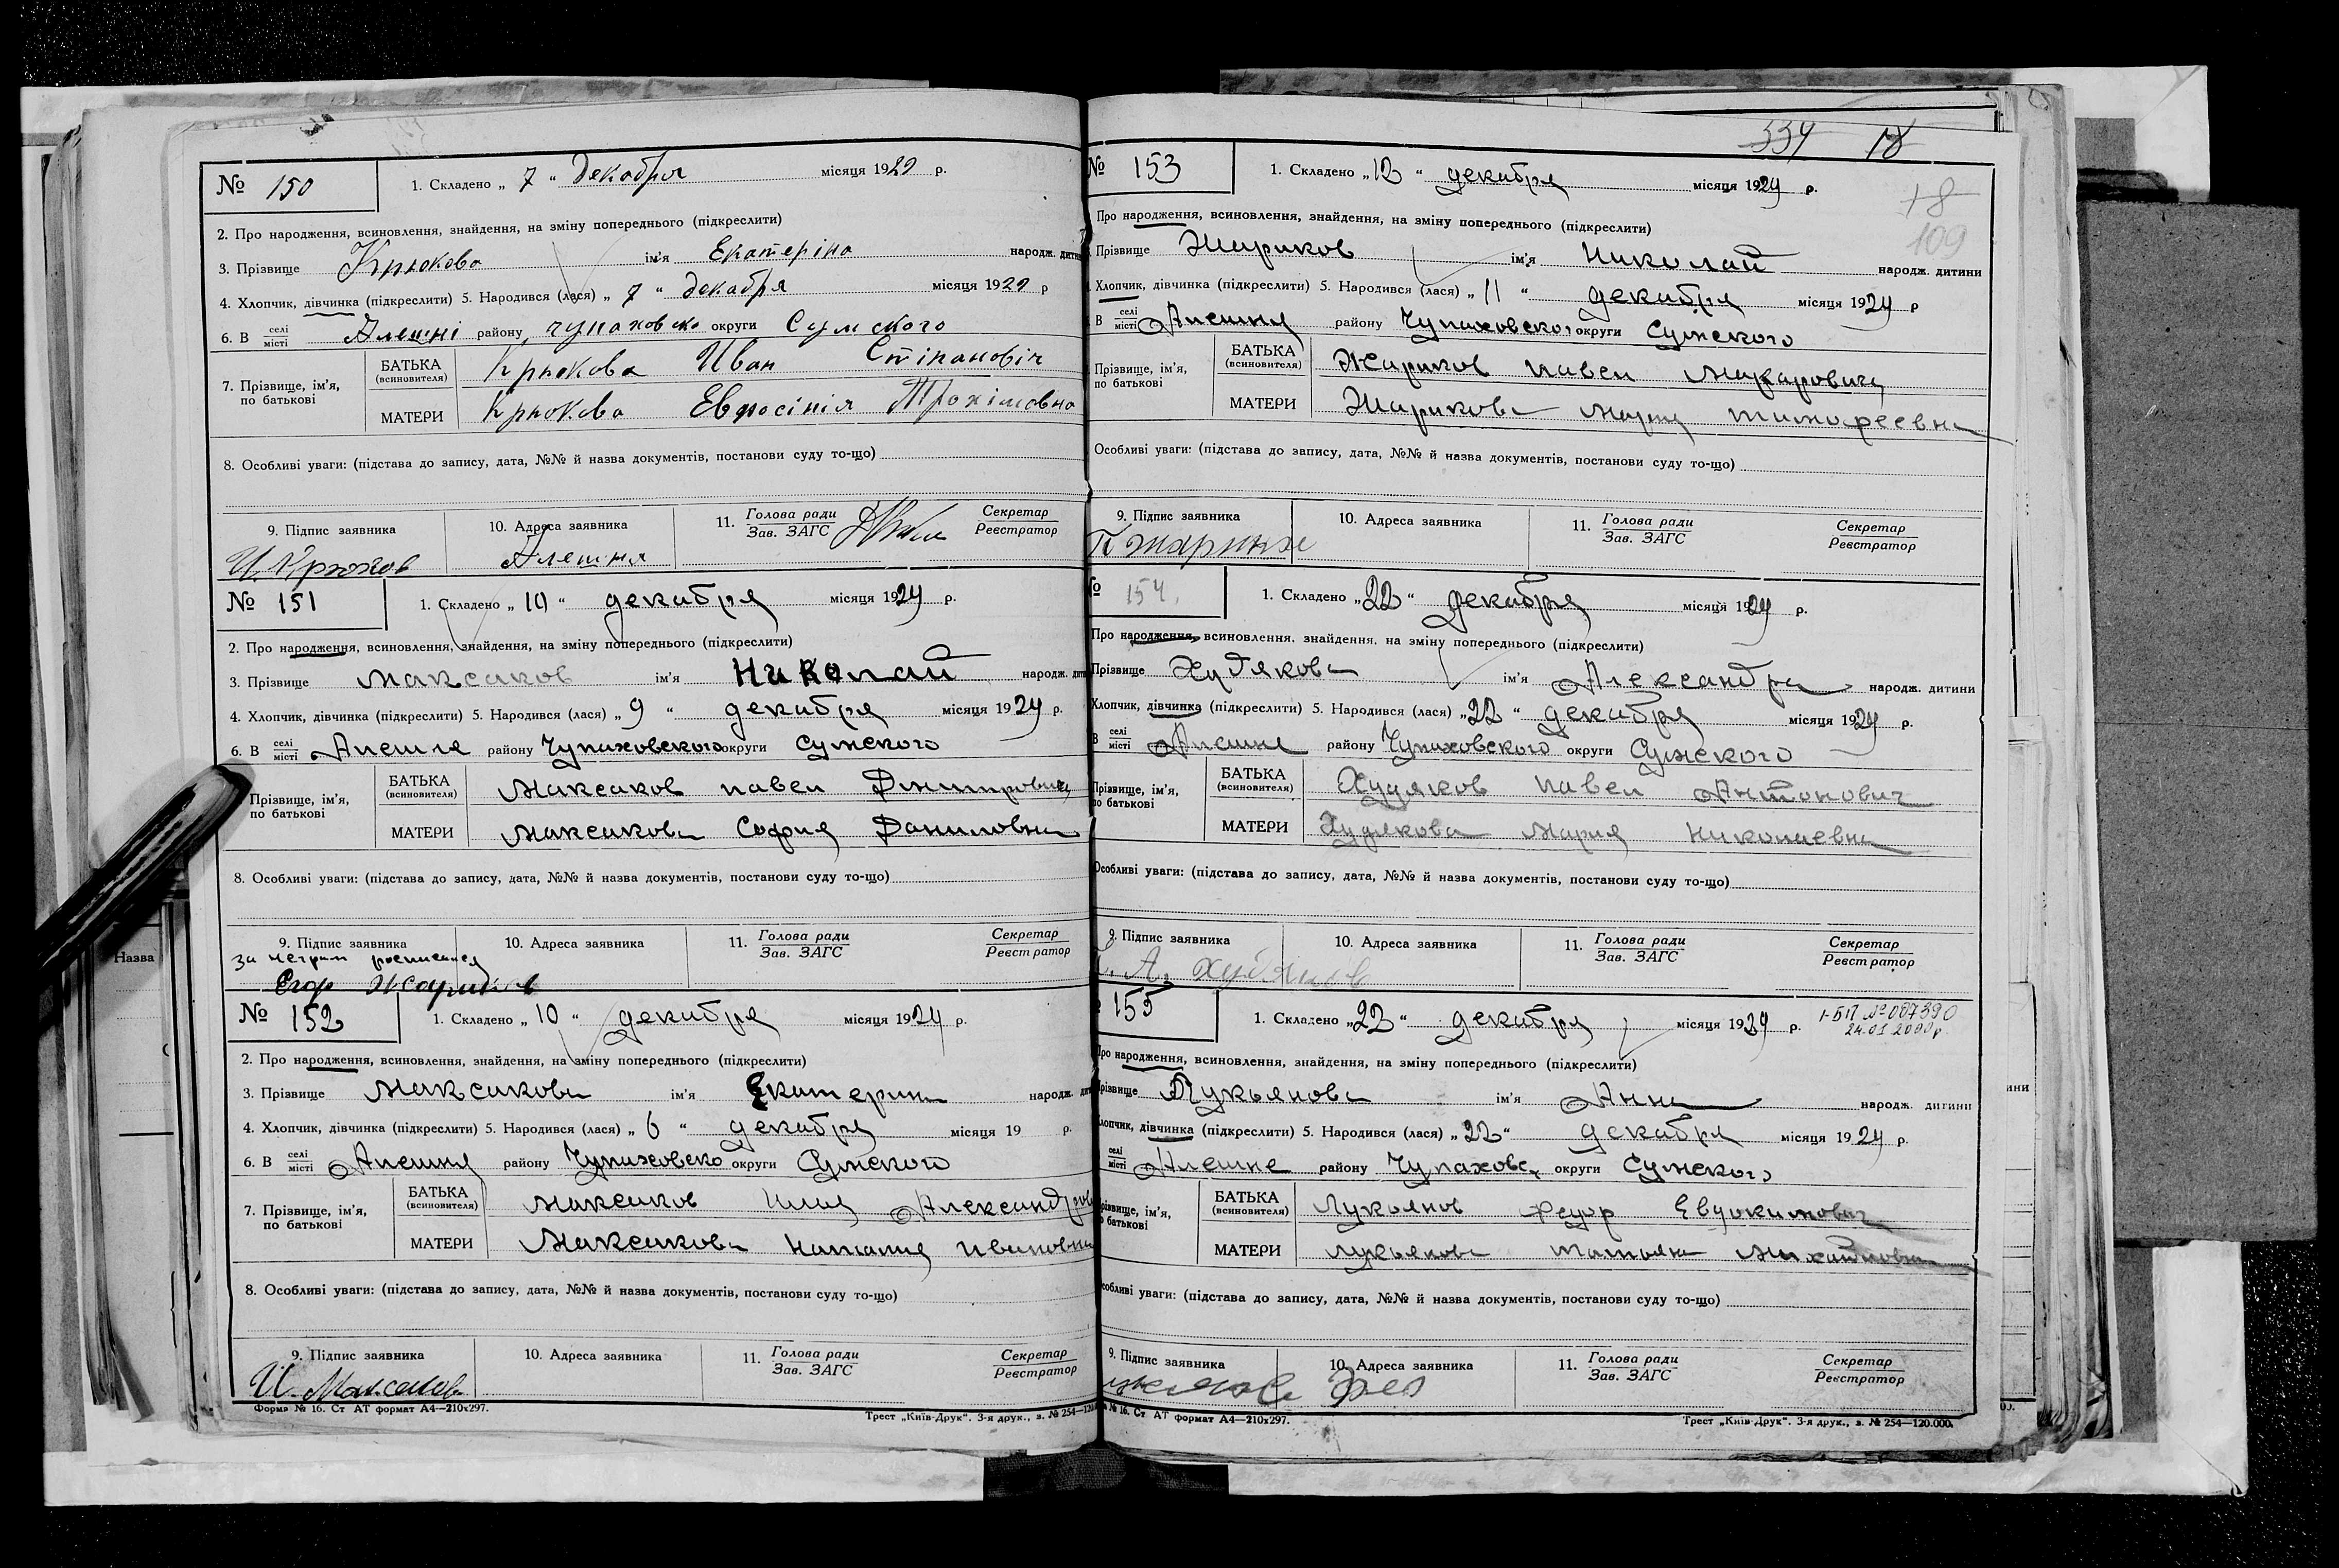 № 150 1. Складено „ 7 “ Декабря місяця 1929 р.
2. Про народження, всиновлення, знайдення, на зміну попереднього (підкреслити)
3. Прізвище Крюкова ім'я Екатеріна народж. дитини
4. Хлопчик, дівчинка (підкреслити) 5. Народився (лася) „ 7 “ декабря місяця 1929 р
6. В селі місті Алешні району чупаховско округи Сумского
7. Прізвище, ім'я, по батькові
БАТЬКА (всиновителя) Крюкова Иван Стіпановіч
МАТЕРИ Крюкова Евросінія Трохімовна
8. Особливі уваги: (підстава до запису, дата, №№ й назва документів, постанови суду то-що)
9. Підпис заявника 10. Адреса заявника 11. Голова ради Зав. ЗАГС Секретар Реєстратор
И. Крюков Алешня
№ 151 1. Складено „ 10 “ декабря місяця 1929 р.
2. Про народження, всиновлення, знайдення, на зміну попереднього (підкреслити)
3. Прізвище Максаков ім'я Николай народж.
4. Хлопчик, дівчинка (підкреслити) 5. Народився (лася) „ 9 “ декабря місяця 1929 р.
6. В селі місті Алешне району Чупаховского округи Сумского
Прізвище, ім'я, по батькові
БАТЬКА (всиновителя) Максаков Павел Дмитрович
МАТЕРИ Максакова София Даниловна
8. Особливі уваги: (підстава до запису, дата, №№ й назва документів, постанови суду то-що)
9. Підпис заявника 10. Адреса заявника 11. Голова ради Зав. ЗАГС Секретар Реєстратор
Егор Жариков
№ 152 1. Складено „ 10 “ декабря місяця 1929 р.
2. Про народження, всиновлення, знайдення, на зміну попереднього (підкреслити)
3. Прізвище Максакова ім'я Екатерина народж.
4. Хлопчик, дівчинка (підкреслити) 5. Народився (лася) „ 6 “ декабря місяця 19 р.
6. В селі місті Алешня району Чупаховско округи Сумского
7. Прізвище, ім'я, по батькові
БАТЬКА (всиновителя) Максаков Илья Александров
МАТЕРИ Максакова Наталия Ивановна
8. Особливі уваги: (підстава до запису, дата, №№ й назва документів, постанови суду то-що)
9. Підпис заявника 10. Адреса заявника 11. Голова ради Зав. ЗАГС Секретар Реєстратор
И. Максаков
Форма № 16. Ст АТ формат А4—210х297. Трест „Київ-Друк“. 3-я друк., з. № 254—120.000.
334 18
18
109
№ 153 1. Складено „ 12 “ декабря місяця 1929 р.
Про народження, всиновлення, знайдення, на зміну попереднього (підкреслити)
Прізвище Жариков ім'я Николай народж. дитини
Хлопчик, дівчинка (підкреслити) 5. Народився (лася) „ 11 “ декабря місяця 1929 р
В селі місті Алешня району Чупаховского округи Сумского
Прізвище, ім'я, по батькові
БАТЬКА (всиновителя) Жариков Павел Макарович
МАТЕРИ Жарикова Марфа Тимофеевна
Особливі уваги: (підстава до запису, дата, №№ й назва документів, постанови суду то-що)
9. Підпис заявника 10. Адреса заявника 11. Голова ради Зав. ЗАГС Секретар Реєстратор
№ 154. 1. Складено „ 22 “ декабря місяця 1929 р.
Про народження, всиновлення, знайдення, на зміну попереднього (підкреслити)
Прізвище Худякова ім'я Александра народж. дитини
Хлопчик, дівчинка (підкреслити) 5. Народився (лася) „ 22 “ декабря місяця 1929 р.
В селі місті Алешне району Чупаховского округи Сумского
Прізвище, ім'я, по батькові
БАТЬКА (всиновителя) Худяков Павел Антонович
МАТЕРИ Худякова Мария Николаевна
Особливі уваги: (підстава до запису, дата, №№ й назва документів, постанови суду то-що)
9. Підпис заявника 10. Адреса заявника 11. Голова ради Зав. ЗАГС Секретар Реєстратор
А. Худяков
155 1. Складено „ 22 “ декабря місяця 1929 р. І-БП №087390
24.01.2000 р
Про народження, всиновлення, знайдення, на зміну попереднього (підкреслити)
Прізвище Лукьянова ім'я Анна народж. дитини
Хлопчик, дівчинка (підкреслити) 5. Народився (лася) „ 22 “ декабря місяця 1929 р.
селі місті Алешне району Чупаховс округи Сумского
Прізвище, ім'я, по батькові
БАТЬКА (всиновителя) Лукьянов Федор Евдокимович
МАТЕРИ Лукьянова Татьяна Михайловна
Особливі уваги: (підстава до запису, дата, №№ й назва документів, постанови суду то-що)
9. Підпис заявника 10. Адреса заявника 11. Голова ради Зав. ЗАГС Секретар Реєстратор
№ 16. Ст АТ формат А4—210х297. Трест „Київ-Друк“. 3-я друк., з. № 254—120.000.
Назва